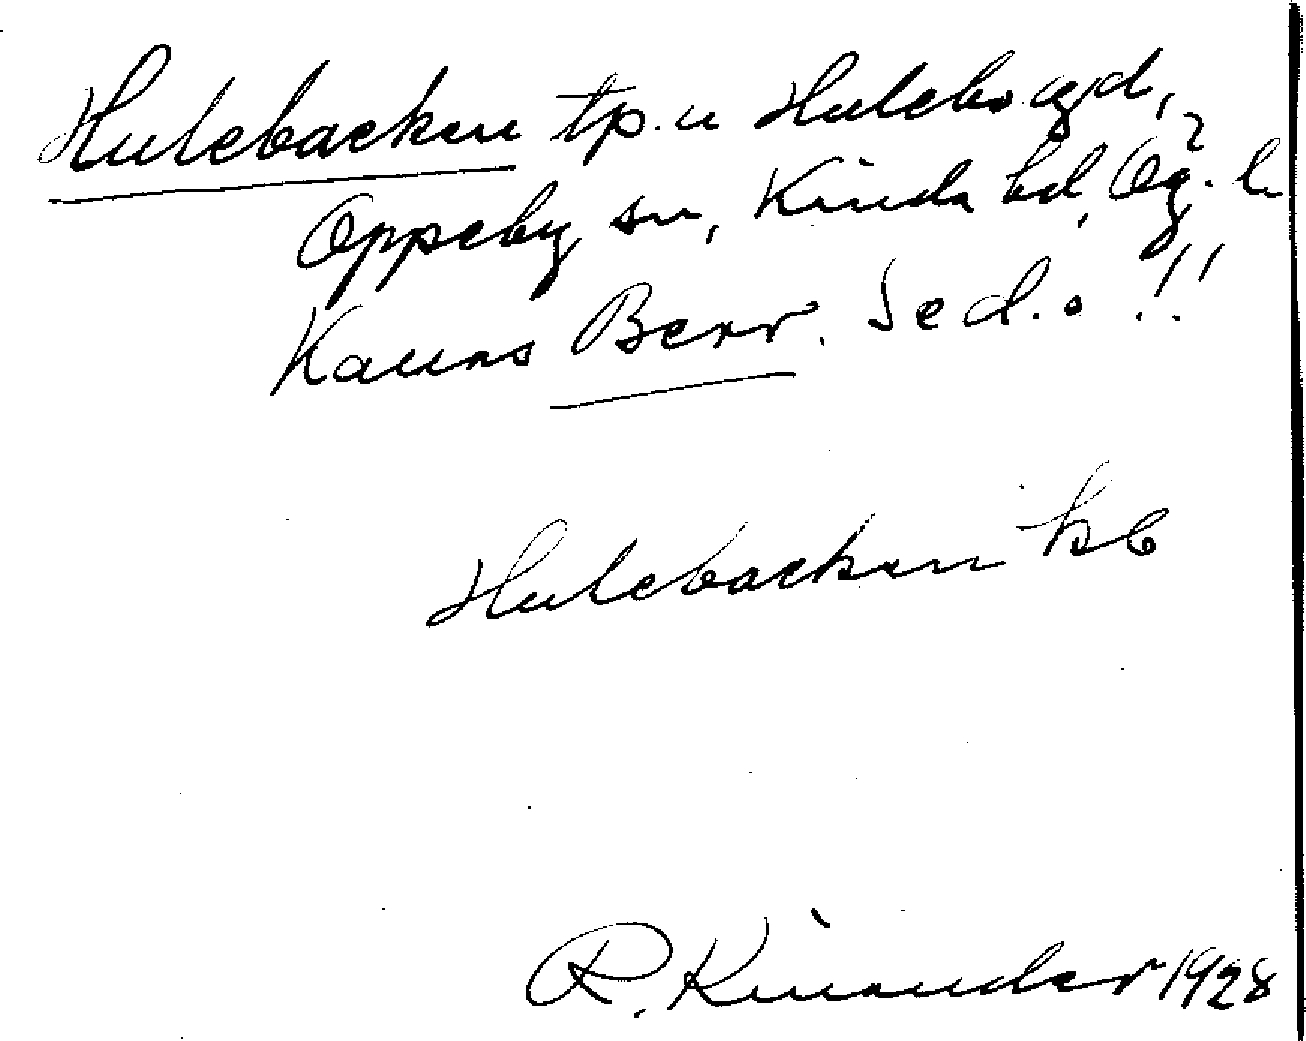 Hulebacken tp. u Hulebo ägd,
Oppeby sn, Kinda hd, Ög. l.
Kauns Berr. Se d.o !!
Hulebacken kb
R. Kinander 1928